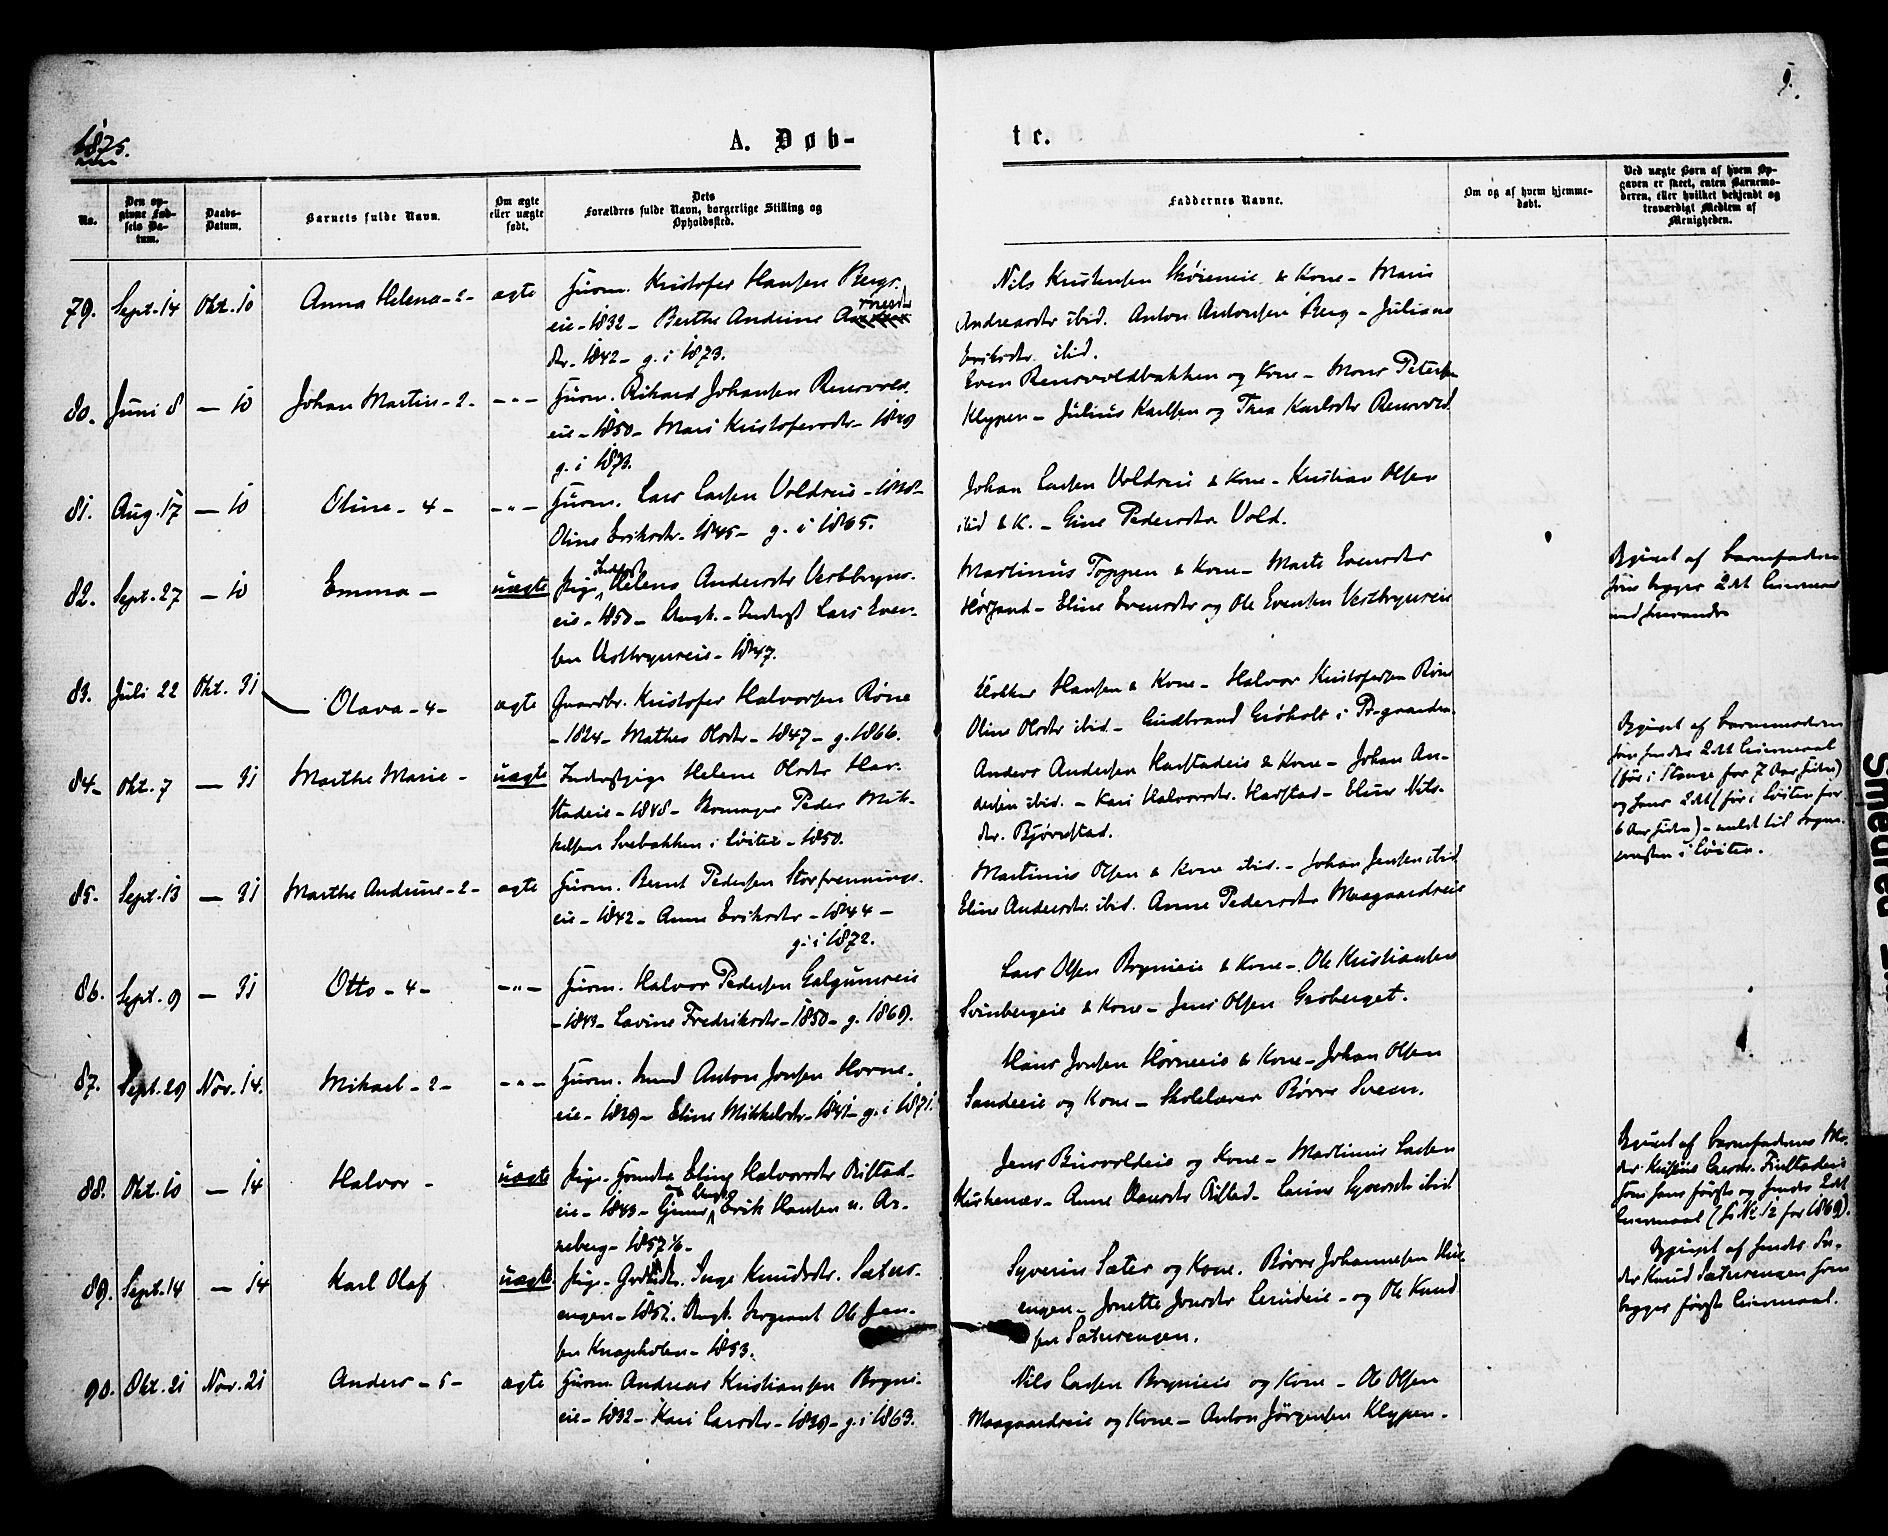 9.
1875.
A. Døb-
te.
No.
Den op-
givne Fød-
sels Da-
tum.
Daabs-
Datum.
Barnets fulde Navn.
Om ægte
eller uægte
født.
Dets
Forældres fulde Navn, borgerlige Stilling og
Opholdssted.
Faddernes Navne.
Om og af hvem hjemme-
døbt.
Ved uægte Børn af hvem Op-
gaven er skeet, enten Barnemo-
deren, eller hvilket bekjendt og
troværdigt Medlem af
Menigheden.
79. Sept. 14 Okt. 10 Anna Helena - 2 - ægte
Husm. Kristofer Hansen Bergs-
eie - 1832 - Berthe Andrine
dr. 1842 - g. i 1873.
Nils Kristensen & Kone - Mari
Andreasdr ibid. Anton Antonsen Berg - Juliane
Eriksdr. ibid.
80. Juni 8 — 10 Johan Martin - 2 - - " -
Husm. Rikard Johansen Rensvold
eie - 1850 - Mari Kristofersdr - 1849
g. i 1873.
Even Rensvoldbakken og Kone - Mons Petersen
Klypen - Julius Karlsen og Thea Karlsdr Rensvold
81. Aug. 17 — 10 Oline - 4 - - " -
Husm. Lars Larsen Voldseie - 1838 -
Oline Eriksdr. 1845 - g. i 1865.
Johan Larsen Voldseie & Kone - Kristian Olsen
ibid & K. - Gine Pedersdr Vold.
82. Sept. 27 — 10 Emma - uægte
Pige Inderst Helene Andersdr Vestbyns-
eie - 1850 - Ungk. - Inderst Lars Even-
sen Vestbynseie - 1847.
Martinus Toppen & Kone - Marte Evensdr
- Eline Evensdr og Ole Evensen Vestbynseie
Opgivet af barnefaderen
som begges 2det Leiermaal
med hverandre
83. Juli 22 Okt. 31 Olava - 4 - ægte
Gaardbr. Kristofer Halvorsen Røne
- 1824 - Mathea Olsdr - 1847 - g. 1866.
Hansen & Kone - Halvor Kristofersen Røne
Oline Olsdr ibid. - Gudbrand Grøholt i Pr.gaarden.
84 - Okt. 7 — 31 Marthe Marie - uægte
Inderstpige Helene Olsdr Har-
stadeie - 1848 - Peder Mik-
kelsen Svebakken i Løiten - 1850.
Anders Andersen Harstadeie & Kone - Johan An-
dersen ibid. - Kari Halvorsdr. Harstad - Eline Nils-
dr. Bjørnstad.
Opgivet af barnemoderen
som hendes 2det Leiermaal
(før i Stange for 7 Aar siden)
og hans 2det (før i Løiten for
6 Aar siden) - meldt til Sogne-
presten i Løiten.
85. Sept. 13 — 31 Marthe Andrine - 2 - ægte
Husm. Bernt Pedersen Storfrennings-
eie - 1842 - Anne Eriksdr - 1844 -
g. i 1872.
Martinus Olsen & Kone ibid. - Johan Jensen ibid
Eline Andersdr. ibid. Anne Pedersdr Maagaardseie
86. Sept. 9 — 31 Otto - 4 - - " -
Husm. Halvor Pedersen Galgumseie
- 1843 - Lavine Fredriksdr - 1850 - g. 1869.
Lars Olsen Brynieie & Kone - Ole Kristiansen
Svinbergeie & Kone - Jens Olsen Groberget.
87. Sept. 29 Nov. 14. Mikael - 2 - - " -
Husm. Anton Jonsen Horne-
eie - 1839 - Eline Mikkelsdr - 1841 - g. i 1871.
Hans Jonsen Horneeie & Kone - Johan Olsen
Sandeeie og Kone - Skolelærer Børre Sveen.
88. Okt. 10 — 14 Halvor - uægte
Pige Eline Halvorsdr Riftad-
eie - 1843 - Erik Hansen u. Ar-
neberg - 1857
Jens og Kone - Martinus Larsen
Kirkenær - Anne Riftad - ibid
Opgivet af Barnefaderens Mo-
der
som hans første og hendes 2det
Leiermaal (se No 12 for 1869).
89. Sept. 14 — 14 Karl Olaf uægte.
Pige - Inge Knudsdr. Sæters-
engen - 1852. Ungk. Sergeant Ole Jen-
sen Knapholen - 1853.
Syverin Sæter og Kone. Børre Johannesen
engen - Jonette Jonsdr - og Ole Knud
sen Sætersengen.
Opgivet af hendes Fa-
der Knud Sætersengen som
begges første Leiermaal.
90. Okt. 21 Nov. 21 Anders - 5 - ægte
Husm. Andreas Kristiansen Bryni-
eie - 1832 - Kari Larsdr - 1839 - g. i 1863.
Nils Larsen Brynieie og Kone - Ole Olsen
Maagaardseie og Kone - Anton Jørgensen Klypen -
Smedred